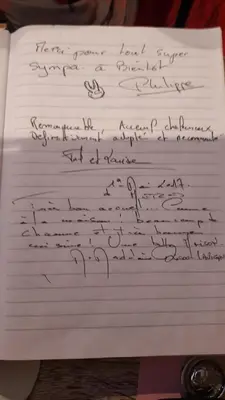 Merci pour tout super
sympa à Bientôt
Philippe
Remarquable Accueil chaleureux
Définitivement adopté et recommandé
Pat et
1er Mai 2017
Très bon accueil... Comme
à la maison! beaucoup de
charme et très bonne
cuisine! Une